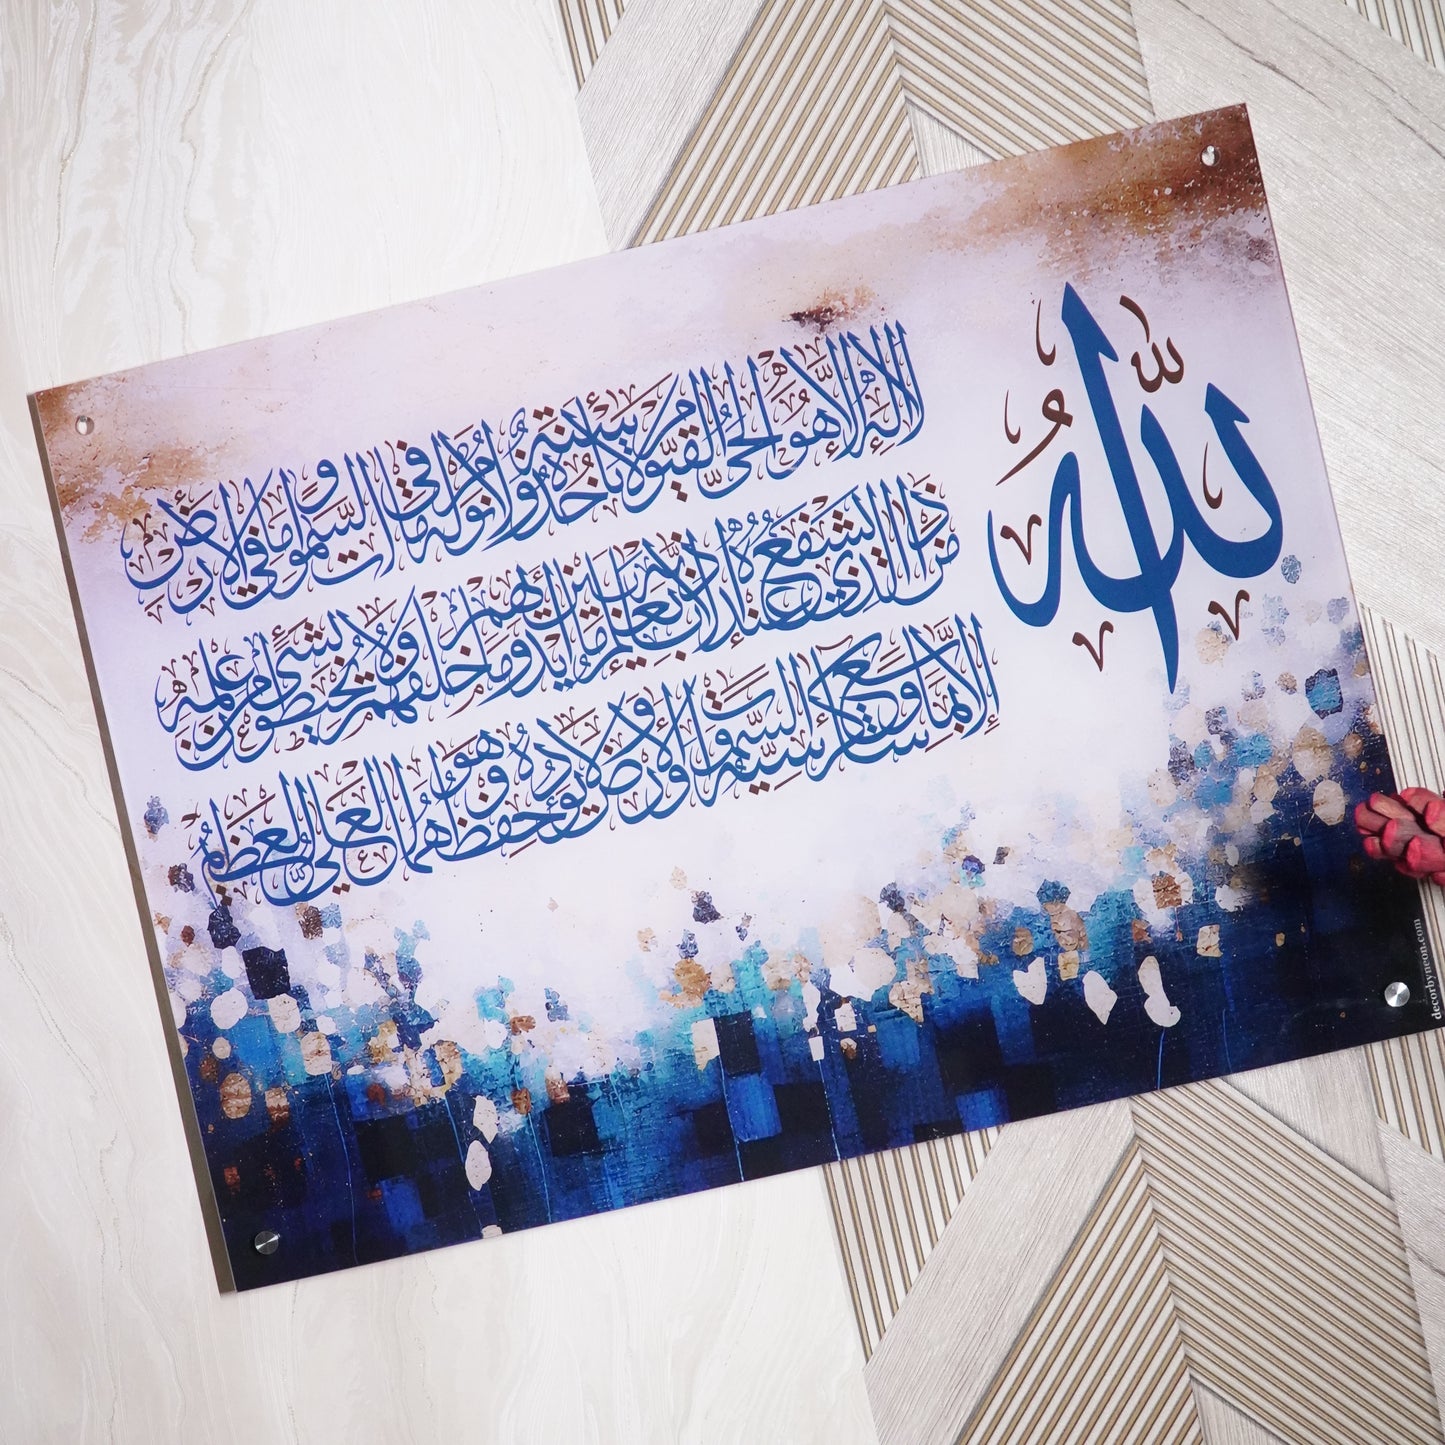 الله
لا إله إلا هو الحي القيوم لا تأخذه سنة ولا نوم له ما في السموات وما في الأرض
من ذا الذي يشفع عنده إلا بإذنه يعلم ما بين أيديهم وما خلفهم ولا يحيطون بشيء من علمه
إلا بما شاء وسع كرسيه السموات والأرض ولا يؤده حفظهما وهو العلي العظيم
decorbyneon.com